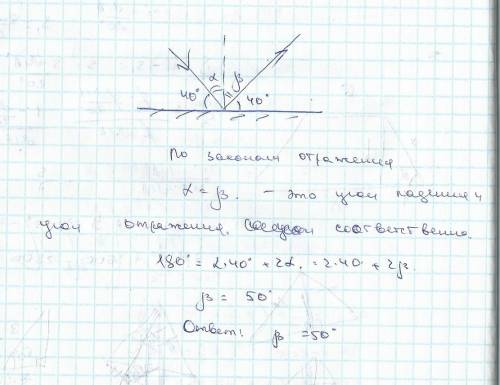 α β
40° 40°
По законам отражения
α = β. – это угол падения и
угол отражения, соответственно.
180° = 2·40° + 2α. = 2·40 + 2β
β = 50°
Ответ: β = 50°